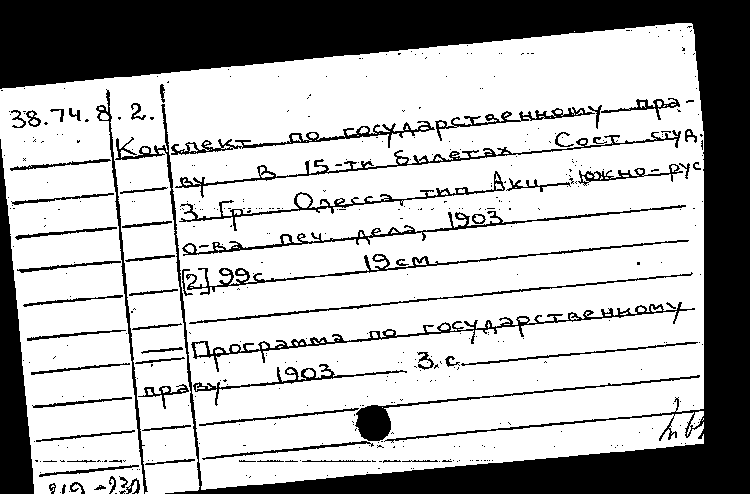 38.74.8.2.
Конспект по государственному пра-
ву в 15-ти билетах Сост. студ.
З. Гр. Одесса, тип Акц. Южно-рус
о-ва печ. дела, 1903.
[2], 99с. 19см.
Программа по государственному
праву. 1903 3.с.
219-230